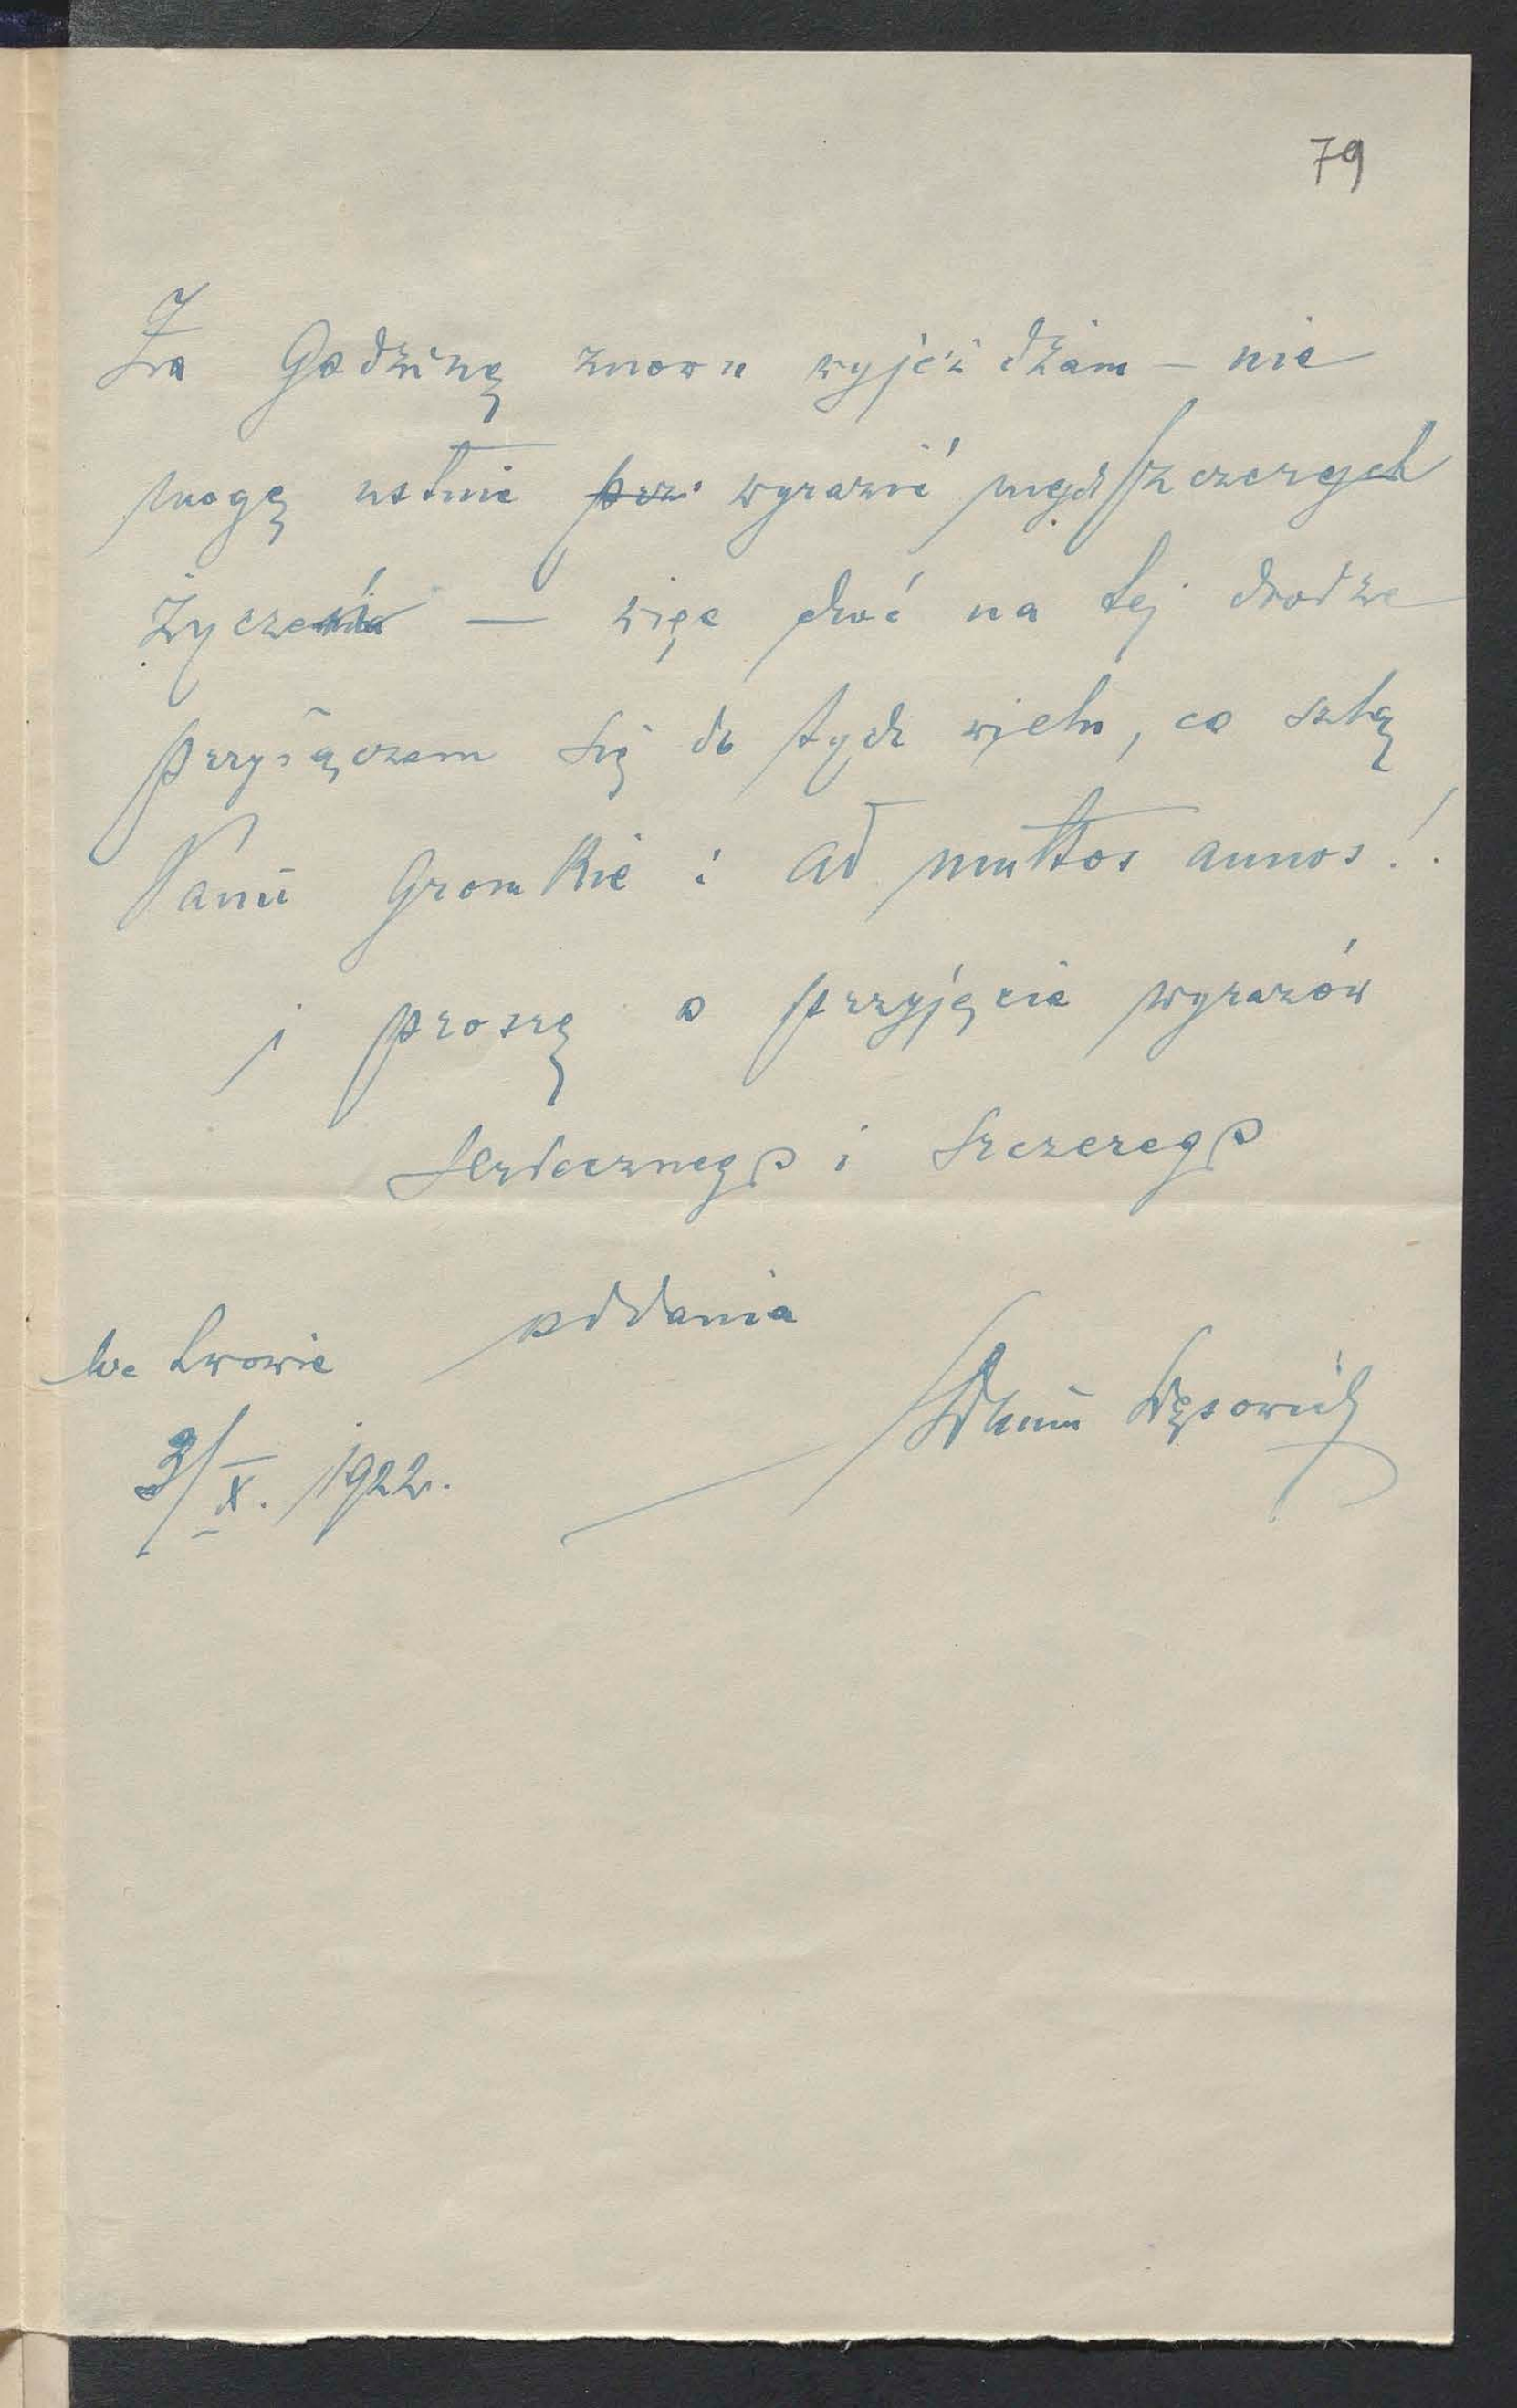 79
Za Godzinę znowu wyjeżdżam – nie
mogę ustnie prz wyrazić mych szczerych
życzeń — więc choć na tej drodze
przyłączam się do tych wielu, co szlą
Panu Gromkie: ad multos annos!
i proszę o przyjęcie wyrazów
Serdecznego i Szczerego
oddania
We Lwowie
3/X. 1922.